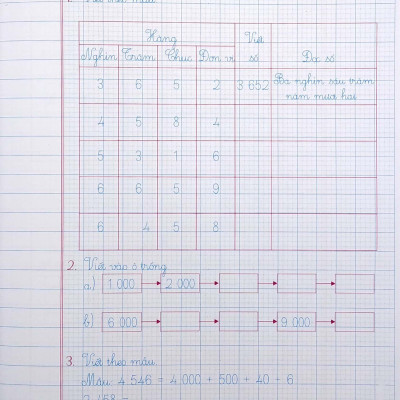 Hàng Viết số Đọc số
Nghìn Trăm Chục Đơn vị
3 6 5 2 3 652 Ba nghìn sáu trăm
năm mươi hai
4 5 8 4
5 3 1 6
6 6 5 9
6 4 5 8
2. Viết vào ô trống
a) 1 000 2 000
b) 6 000 9 000
3. Viết theo mẫu
Mẫu 4 546 = 4 000 + 500 + 40 + 6